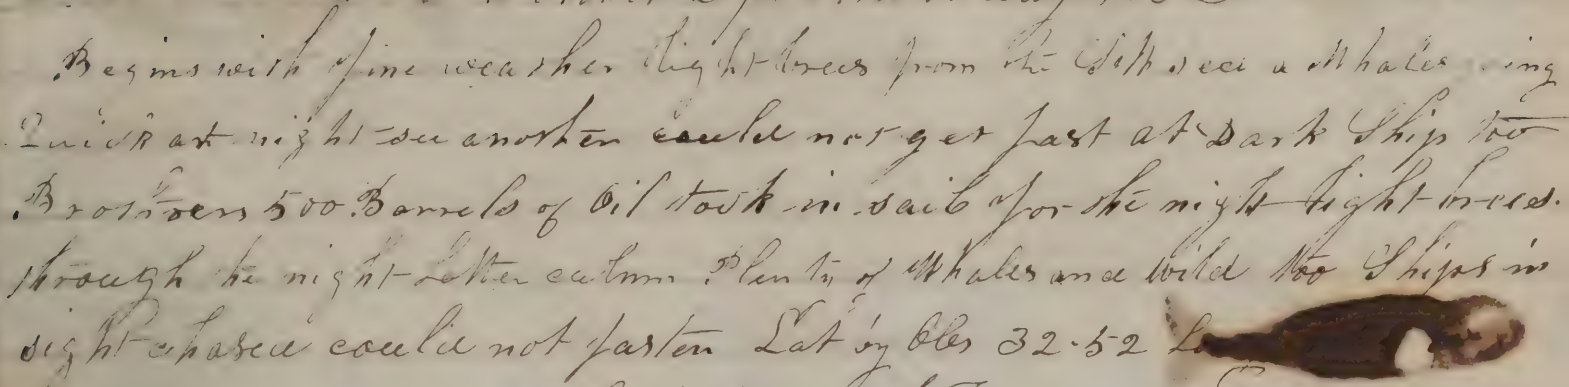 Begins with fine weather light brees from the Wtt see a Whales going
Quick at night see another could not get fast at Dark Ship too
Brothers 500 Barrels of Oil took in sail for the night light brees
through the night Latter calum Plenty of Whales and wild too Ships in
sight chased could not fasten Lat by Obs 32.52